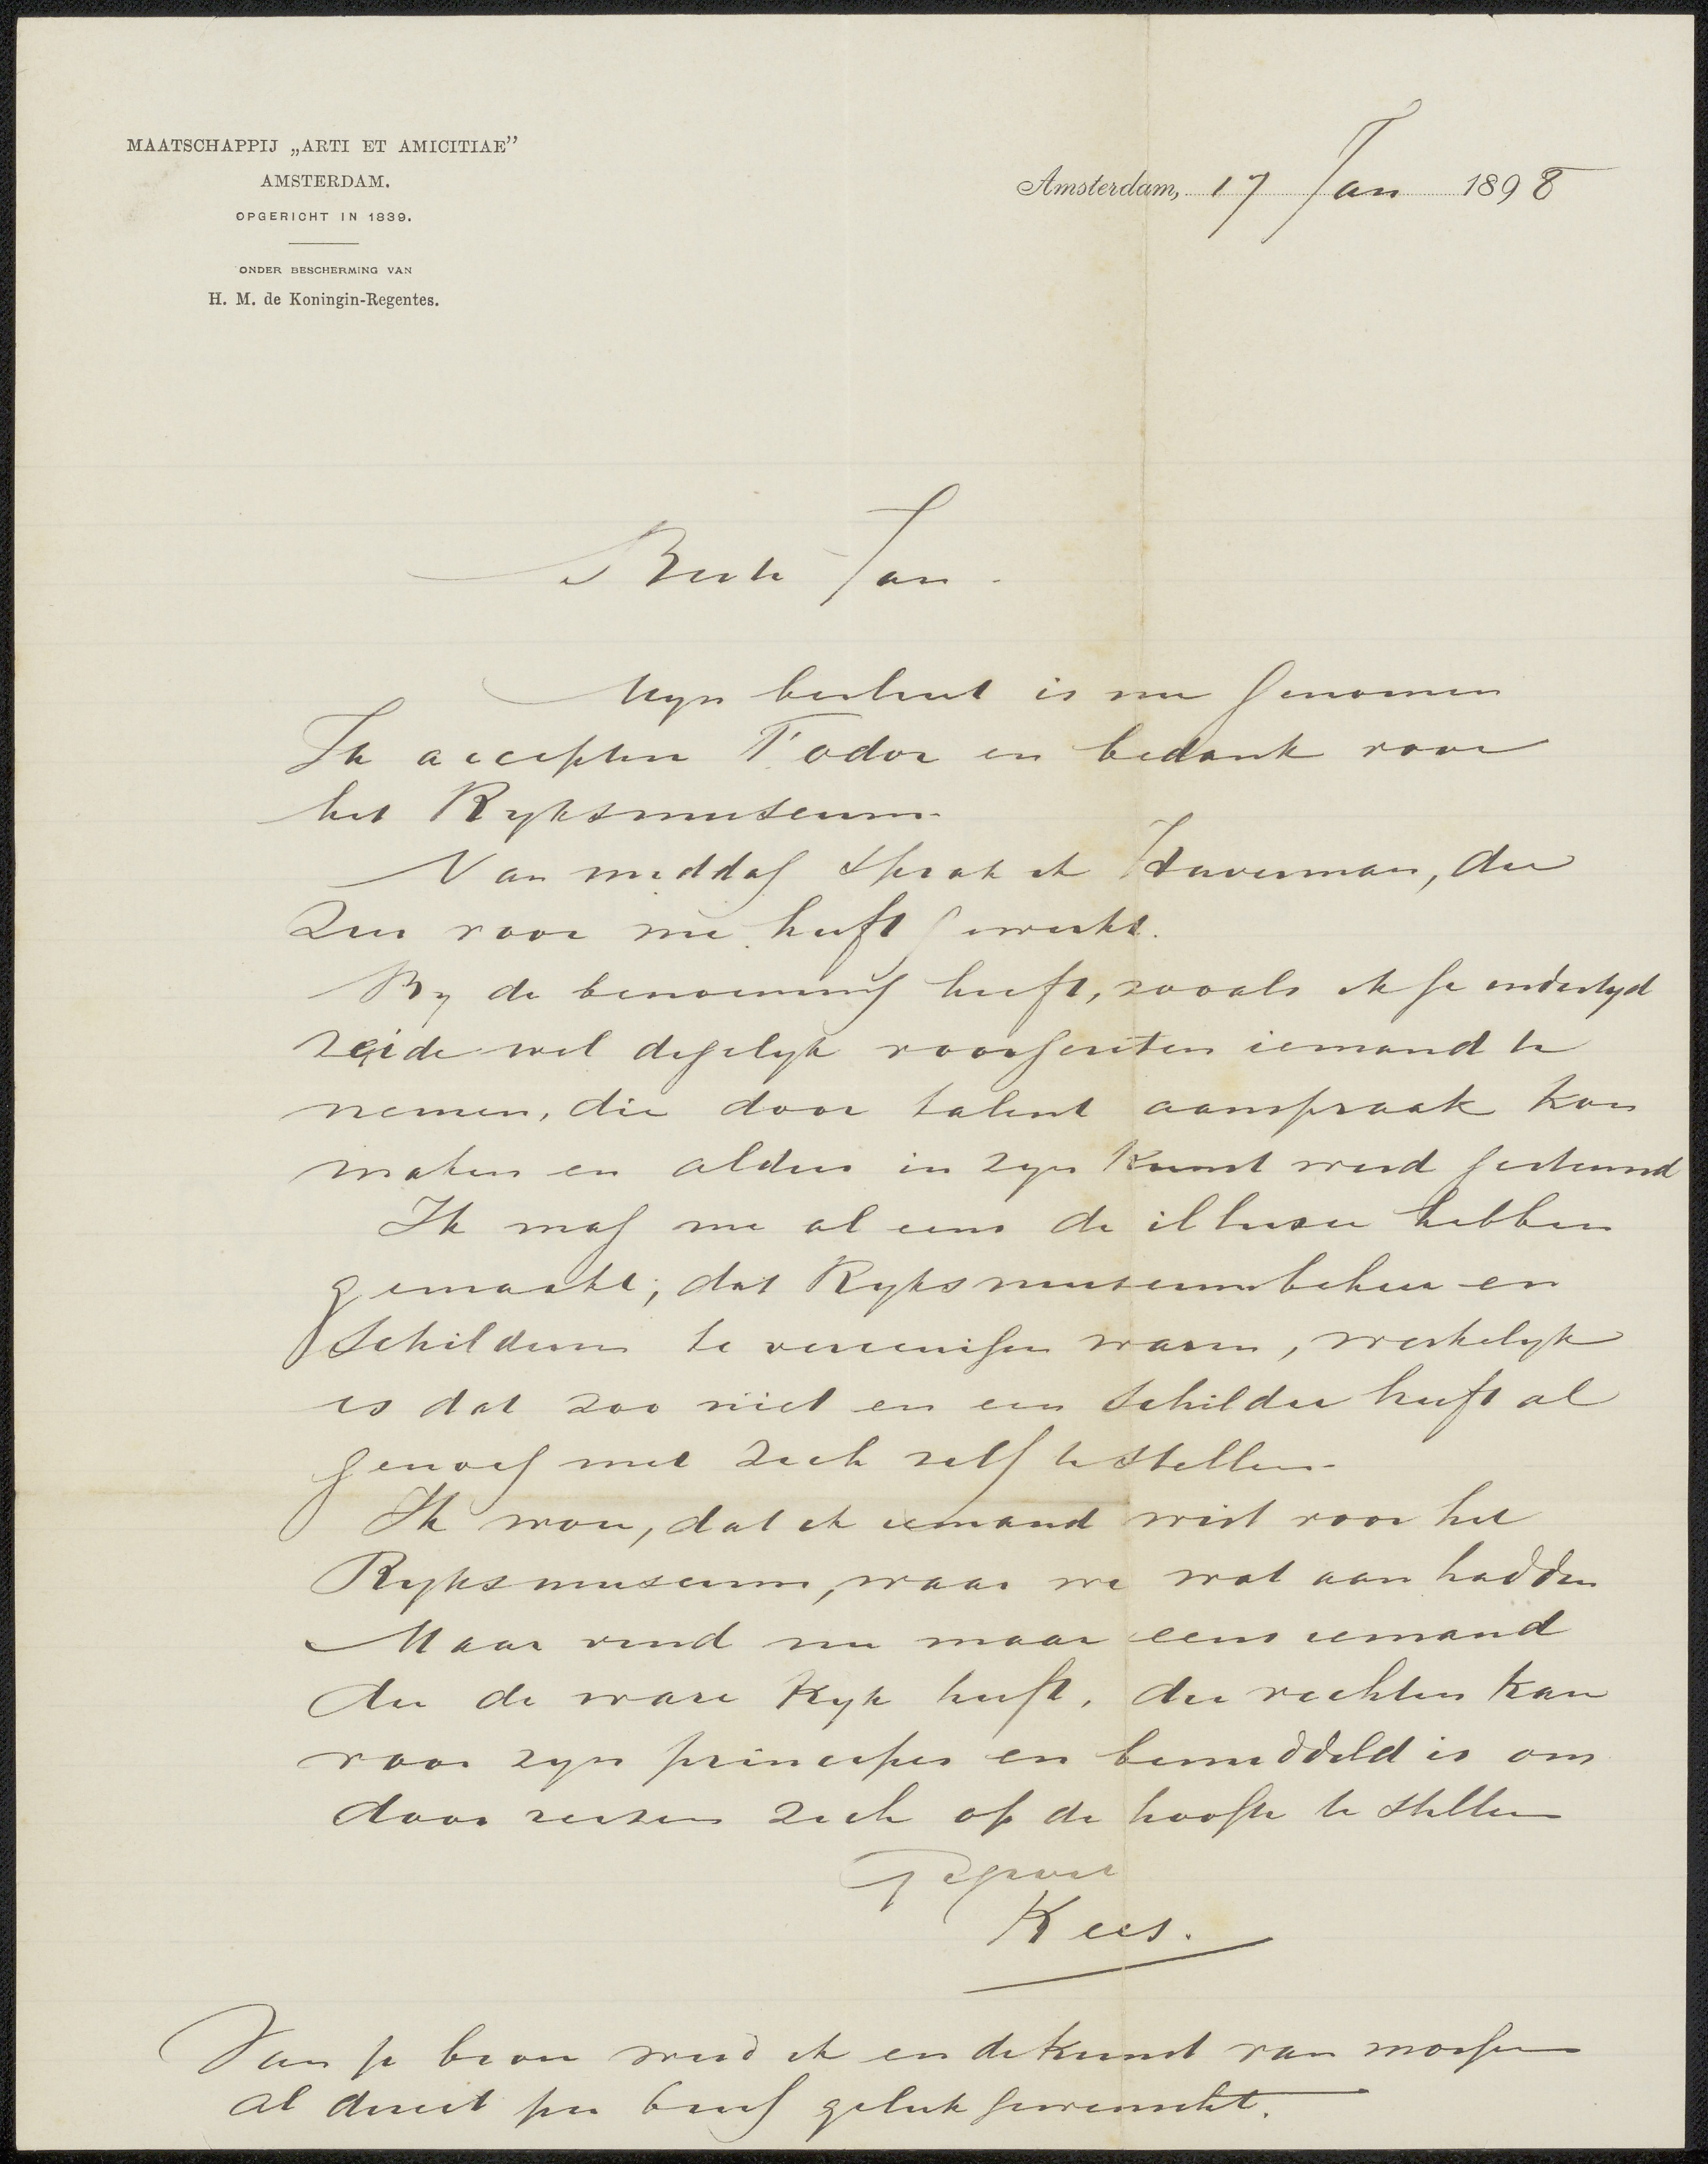 MAATSCHAPPIJ „ARTI ET AMICITIAE”
AMSTERDAM.
OPGERICHT IN 1839.
ONDER BESCHERMING VAN
H. M. de Koningin-Regentes.
Amsterdam, 17 Jan 1898
Beste Jan.
Myn besluit is nu genomen
Ik accepteer Fodor en bedank voor
het Ryksmuseum.
Van middag sprak ik Haverman, die
zeer voor me heeft gewerkt.
By de benoeming heeft, zooals ik je indertyd
zeide wel degelyk voorgezeten iemand te
nemen, die door talent aanspraak kon
maken en aldus in zyn kunst werd gesteund
Ik mag me al eens de illusie hebben
gemaakt, dat Ryksmuseumbeheer en
schilderen te vereenigen waren, werkelyk
is dat zoo niet en een schilder heeft al
genoeg met zich zelf te stellen.
Ik wou, dat ik iemand wist voor het
Ryksmuseum, waar we wat aan hadden
Maar vind nu maar eens iemand
die de ware kyk heeft, die vechten kan
voor zyn principes en bemiddeld is om
door reizen zich op de hoogte te stellen
Gegroet
Kees.
Van je broer werd ik en de kunst van morgen
al direct per brief geluk gewenscht.